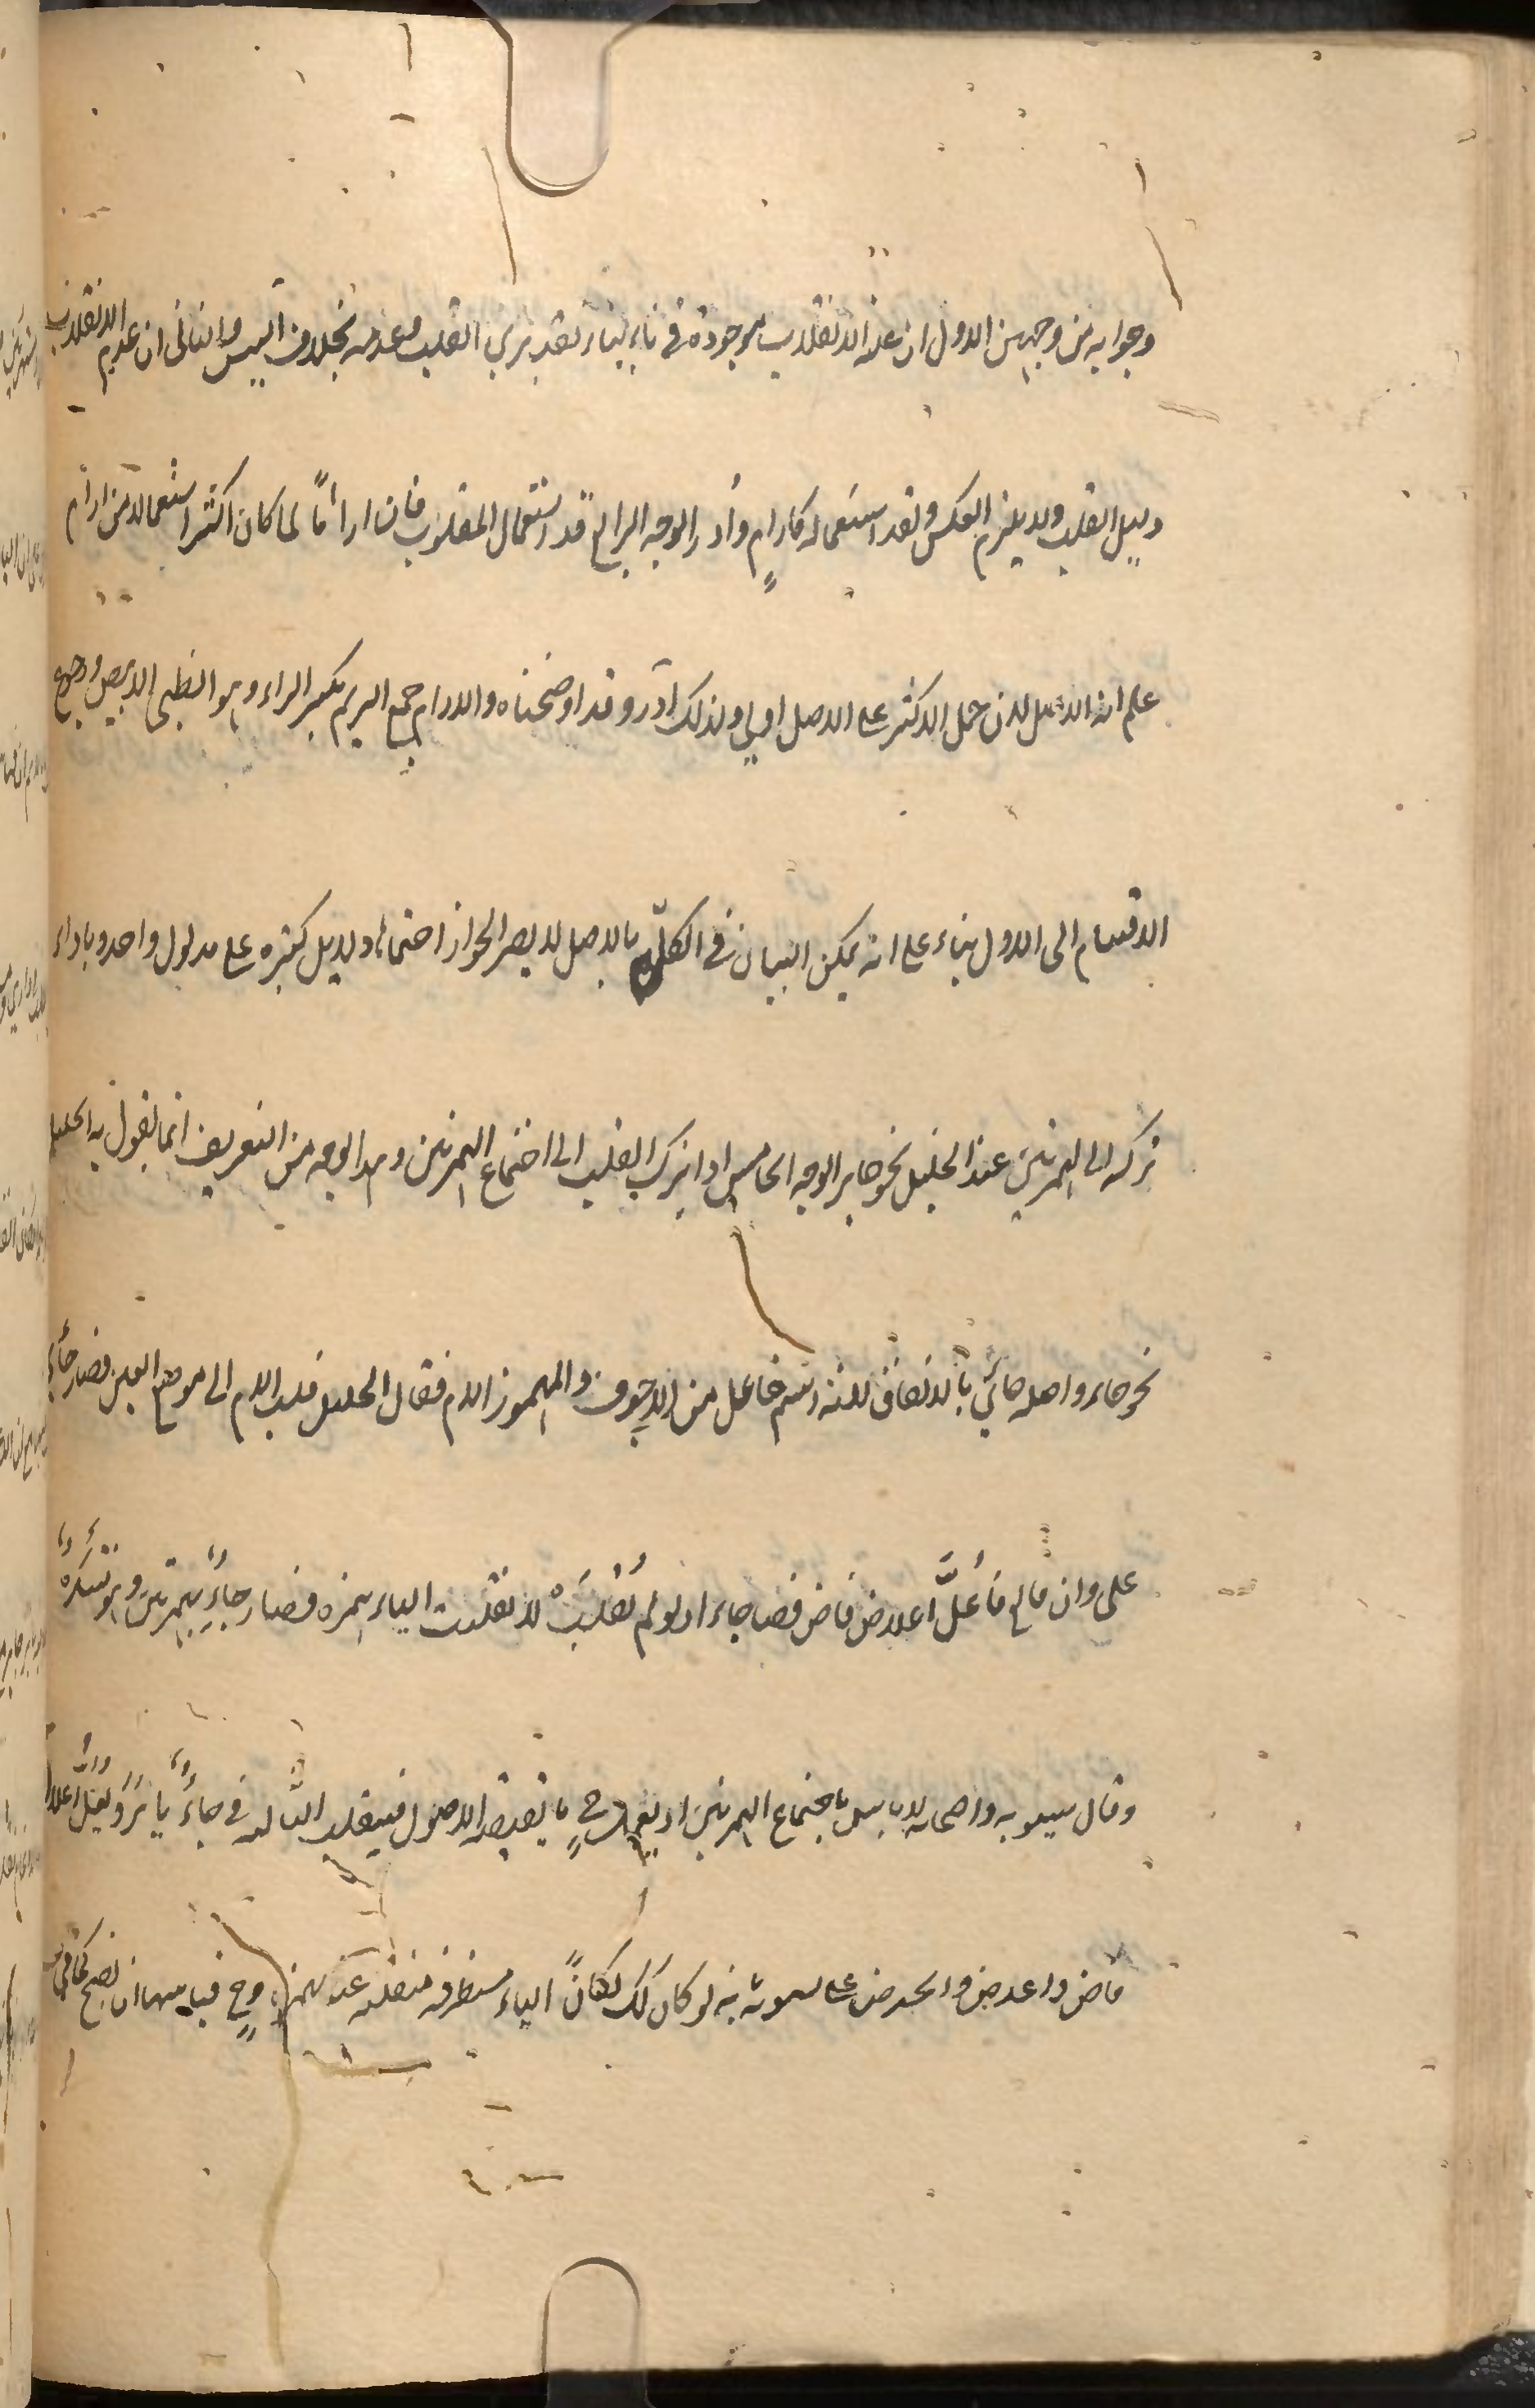 وجوابه من وجهين الاول ان علة الانقلاب موجودة في ناء يناء تقديري القلب وعدمه بخلاف ايس والثاني ان عدم الانقلاب
دليل القلب ولا يلزم العكس وقلة استعماله كارام وأدر الوجه الرابع قلة استعمال المقلوب فان اراما لما كان اكثر استعمالا من ارام
علم انه الاصل لان حمل الاكثر على الاصل اولى وكذلك آدر وقد اوضحناه والارام جمع الريم بكسر الراء وهو الظبي الابيض ورجوع
الاقسام الى الاول بناء على انه يمكن البيان في الكل بالاصل لا يضر لجواز اجتماع دلايل كثيرة على مدلول واحد وباداء
تركه الى همزتين عند الخليل نحو جاء الوجه الخامس اداء ترك القلب الى اجتماع الهمزتين وهذا الوجه من التعريف انما يقول به الخليل
نحو جاء واصله جائي بالاتفاق لانه اسم فاعل من الاجوف والمهموز اللام فقال الخليل قلب اللام الى موضع العين فصار جائي
على وزن فالع فأعلّ اعلال قاض فصار جاء اذ لو لم تُقلب لانقلبت الياء همزة فصار جاءء بهمزتين وهو مستكره
وقال سيبويه واصحابه لا باس باجتماع الهمزتين اذ يعمل ح ما يقتضيه الاصول فينقلب الثانية في جاءء ياء ويعل اعلال
قاض واعترض الخ على سيبويه بانه لو كان كك لكان الياء متطرفة منقلبة عن همزة وح قياسها ان تصح كما في